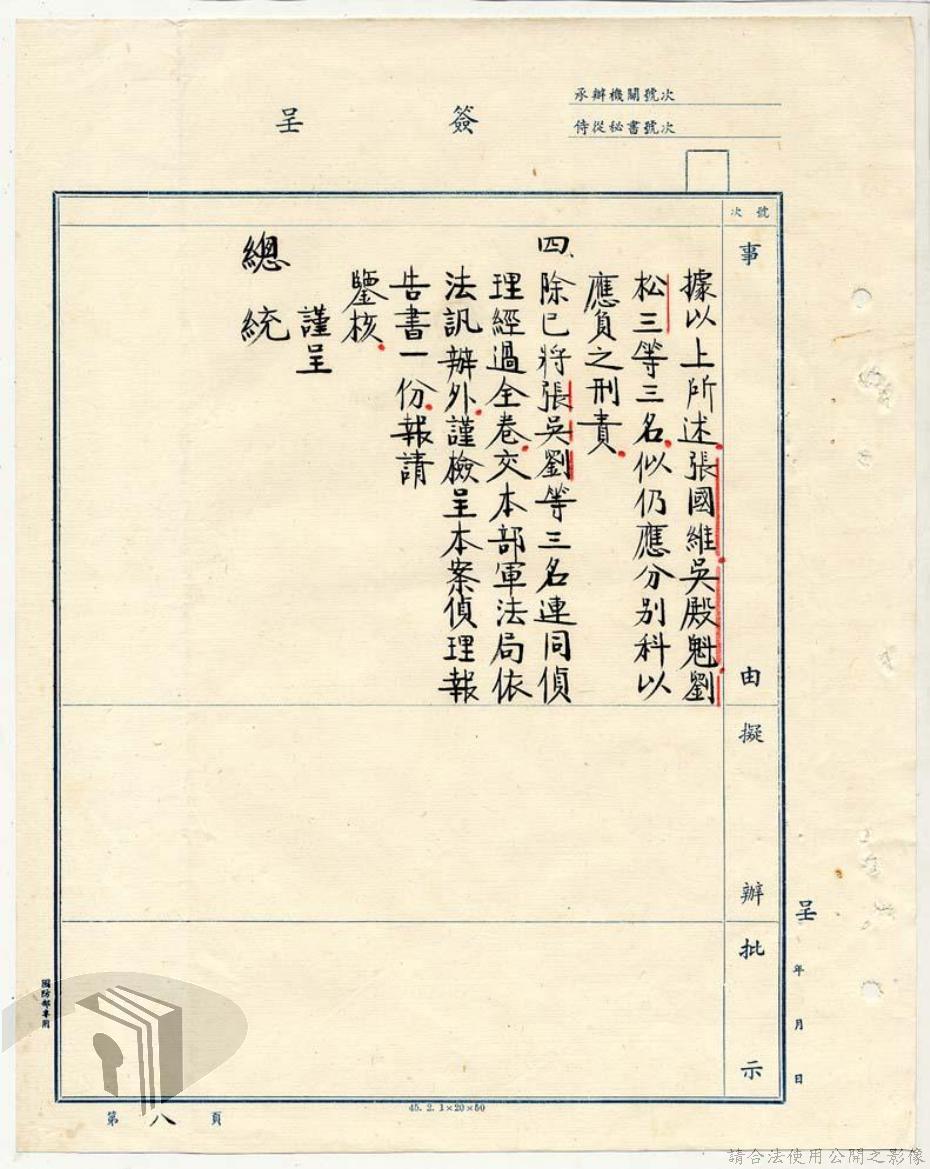 承辦機關號次
侍從秘書號次
簽呈
號次
事由
據以上所述張國維吳殿魁劉
松三等三名似仍應分别科以
應負之刑責
四、除已將張吳劉等三名連同偵
理經過全卷交本部軍法局依
法訊辦外謹檢呈本案偵理報
告書一份報請
鑒核
謹呈
總統
擬辦
批示
呈 年 月 日
國防部專用
第八頁
45. 2. 1×20×50
請合法使用公開之影像